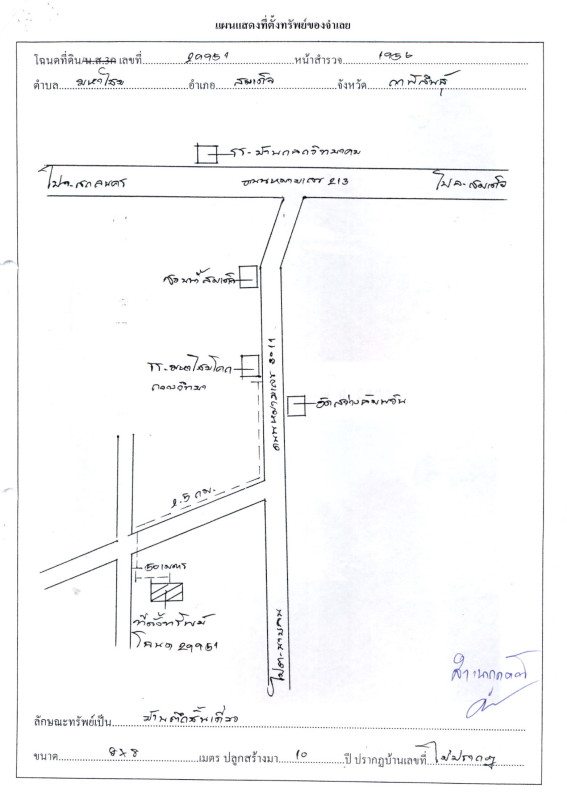 แผนแสดงที่ตั้งทรัพย์ของจำเลย
โฉนดที่ดิน/น.ส.3ก เลขที่ 29951 หน้าสำรวจ 1956
ตำบล มหาไชย อำเภอ สมเด็จ จังหวัด กาฬสินธุ์
รร.บ้านกอกวิทยาคม
ไป จ.สกลนคร ถนนหมายเลข 213 ไป อ.สมเด็จ
สมเด็จ
รร.มหาไชยโคก
กลางวิทยา
ถนนหมายเลข 3011
วัดสว่างสัมพวัน
2.5 กม.
50 เมตร
ที่ตั้งทรัพย์
โฉนด 29951
สำเนาถูกต้อง
ลักษณะทรัพย์เป็น บ้านตึกชั้นเดียว
ขนาด 8x8 เมตร ปลูกสร้างมา 10 ปี ปรากฏบ้านเลขที่ ไม่ปรากฏ